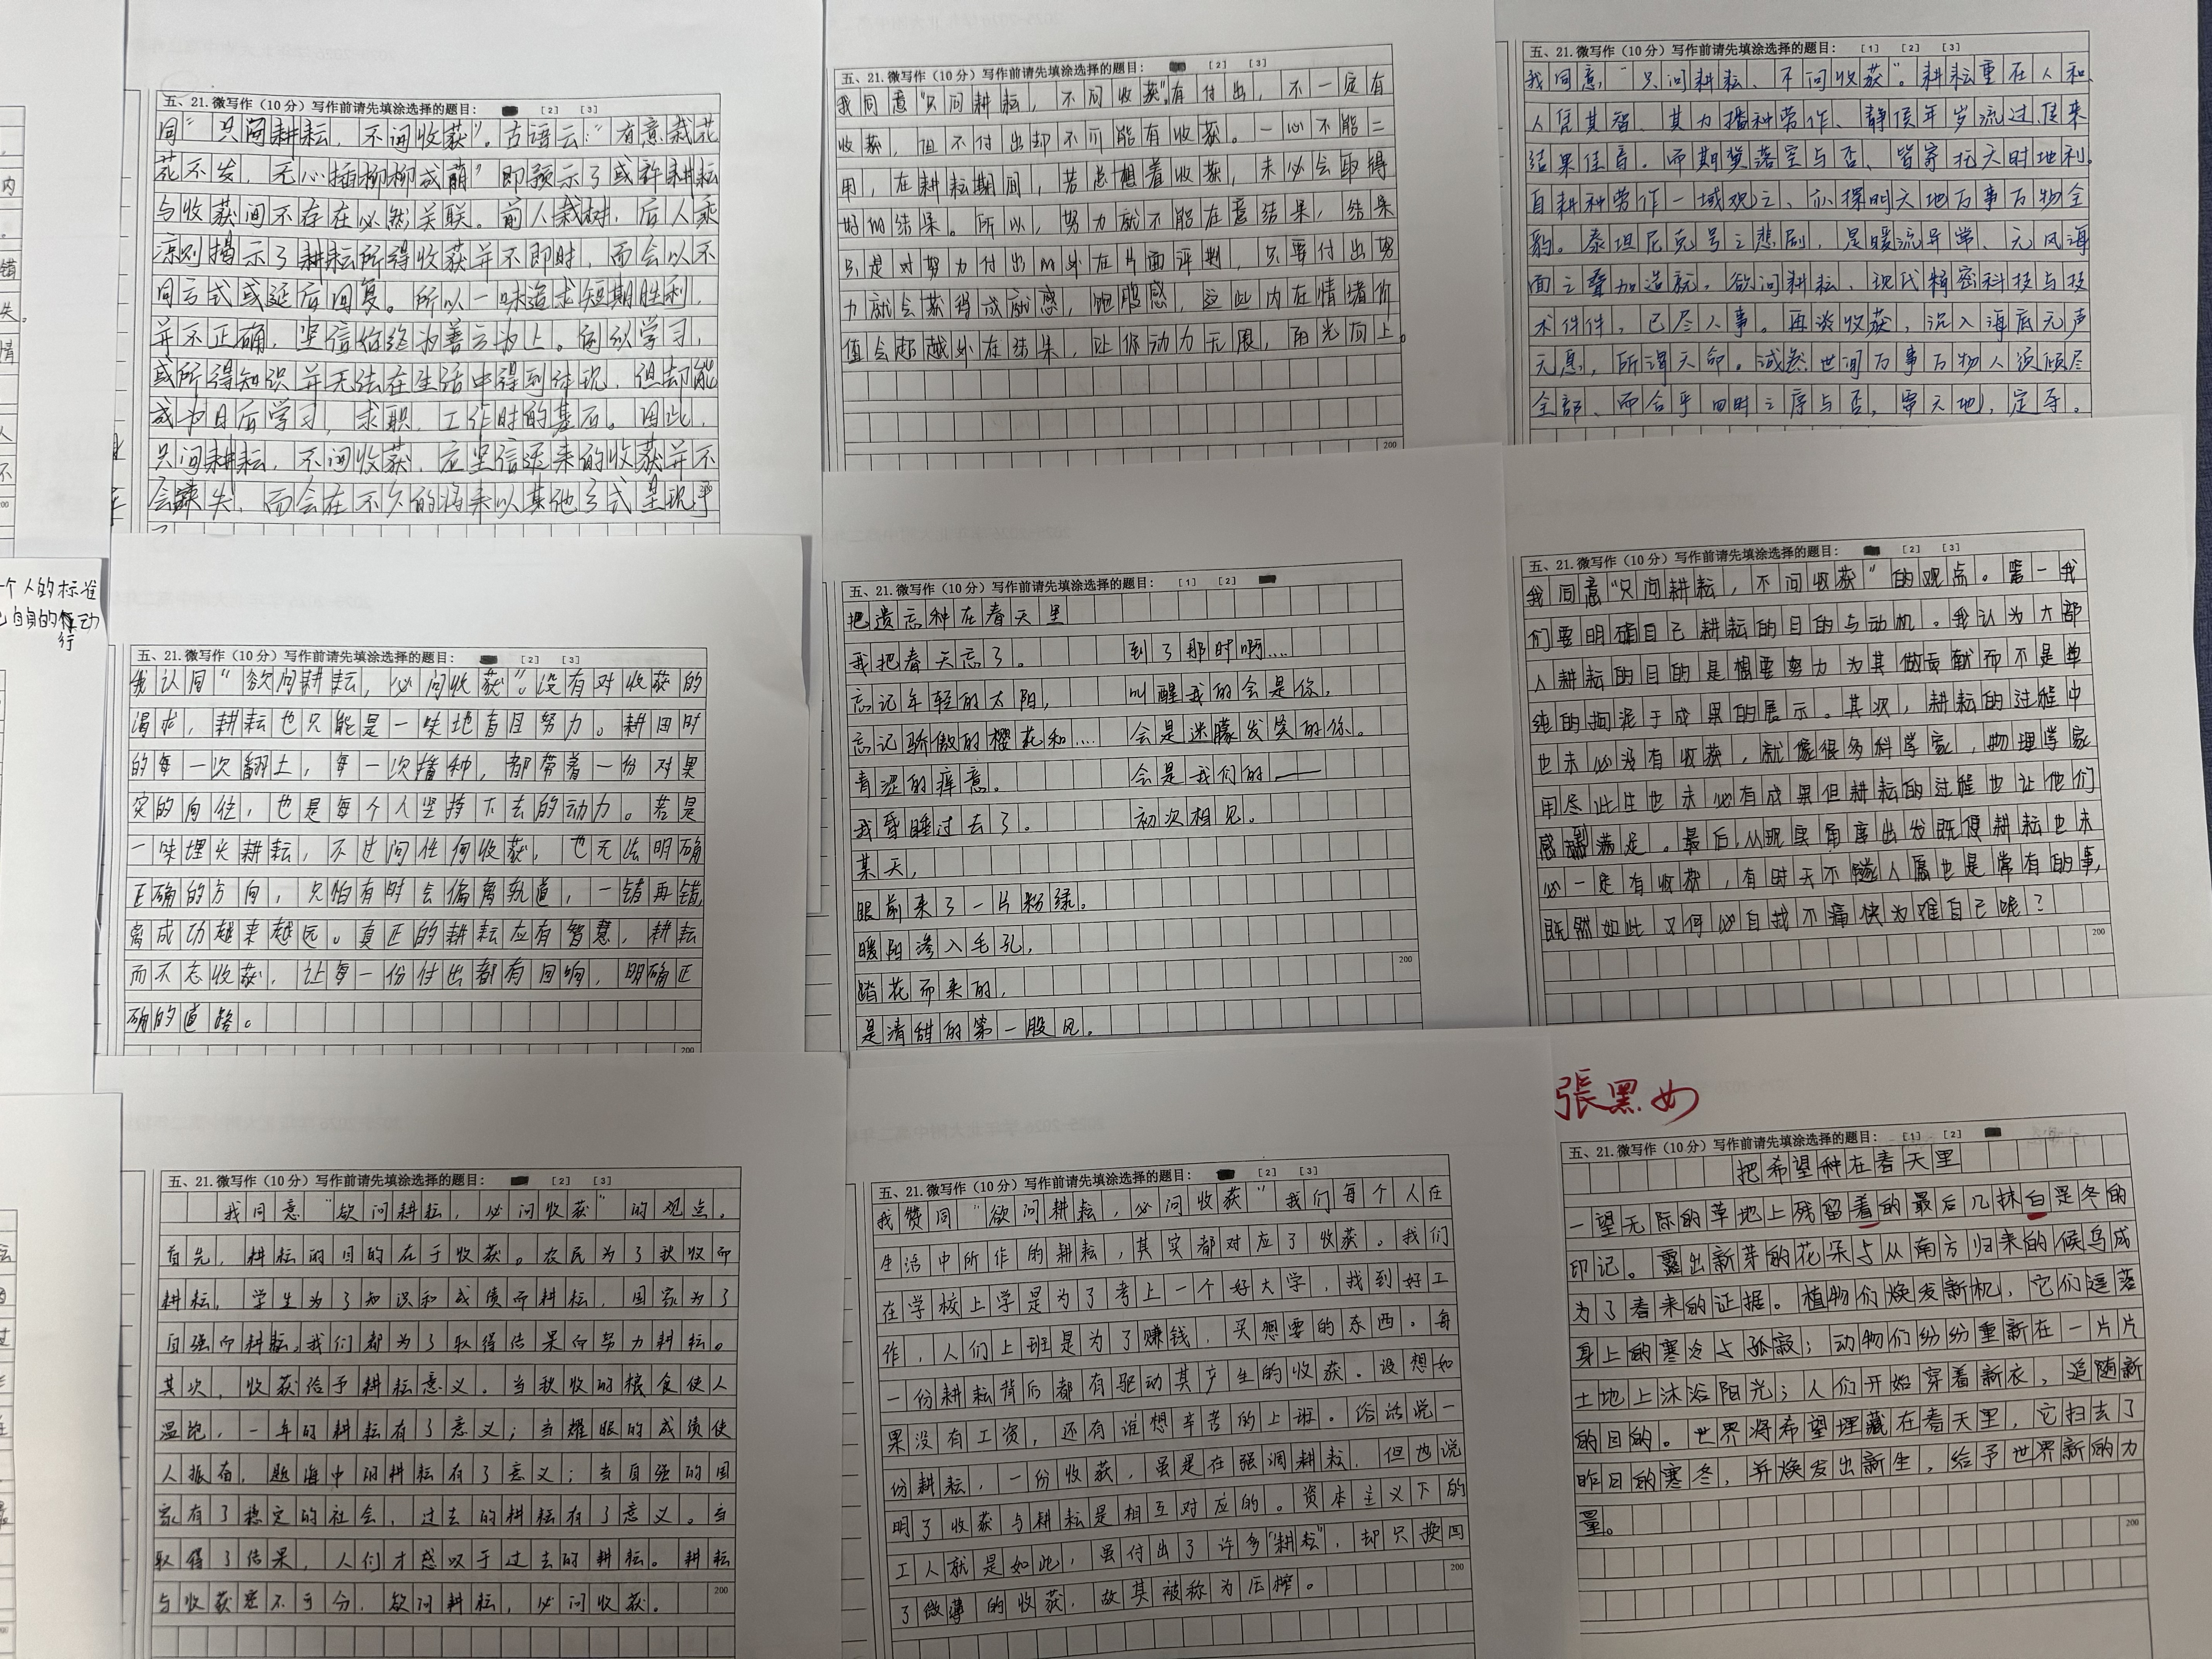 五、21.微写作（10分）写作前请先填涂选择的题目： [2] [3]
同"只问耕耘，不问收获"。古语云："有意栽花
花不发，无心插柳柳成荫"即预示了或许耕耘
与收获间不存在必然关联。前人栽树，后人乘
凉则揭示了耕耘所得收获并不即时，而会以不
同方式或延后回复。所以一味追求短期胜利，
并不正确，坚信始终为善方为上。例如学习，
或所得知识并无法在生活中得到体现，但却能
成为日后学习，求职，工作时的基石。因此，
只问耕耘，不问收获，应坚信迟来的收获并不
会缺失，而会在不久的将来以其他方式呈现
五、21.微写作（10分）写作前请先填涂选择的题目： [2] [3]
我同意"只问耕耘，不问收获"有付出，不一定有
收获，但不付出却不可能有收获。一心不能二
用，在耕耘期间，若总想着收获，未必会取得
好的结果。所以，努力就不能在意结果，结果
只是对努力付出的外在片面评判，只要付出努
力就会获得成就感，饱腹感，这些内在情绪价
值会超越外在结果，让你动力无限，阳光向上。
200
五、21.微写作（10分）写作前请先填涂选择的题目： [1] [2] [3]
我同意，"只问耕耘、不问收获"。耕耘重在人和，
人凭其智、其力播种劳作、静侯年岁流过，佳来
结果佳音。而期冀落空与否、皆寄托天时地利。
自耕种劳作一域观之、亦探明天地万事万物全
豹。泰坦尼克号之悲剧，是暖流异常、无风海
面之叠加造就。欲问耕耘、现代精密科技与技
术件件，已尽人事。再谈收获，沉入海底无声
无息，所谓天命。诚然世间万事万物人须倾尽
全部、而合乎四时之序与否，审天地，定夺。
五、21.微写作（10分）写作前请先填涂选择的题目： [2] [3]
我认同"欲问耕耘，必问收获"。没有对收获的
渴求，耕耘也只能是一味地盲目努力。耕田时
的每一次翻土，每一次播种，都带着一份对果
实的向往，也是每个人坚持下去的动力。若是
一味埋头耕耘，不过问任何收获，也无法明确
正确的方向，只怕有时会偏离轨道，一错再错，
离成功越来越远。真正的耕耘应有智慧，耕耘
而不忘收获，让每一份付出都有回响，明确正
确的道路。
200
五、21.微写作（10分）写作前请先填涂选择的题目： [1] [2]
把遗忘种在春天里
我把春天忘了。
忘记年轻的太阳，
忘记骄傲的樱花和....
青涩的痒意。
我昏睡过去了。
某天，
眼前来了一片粉绿。
暖阳渗入毛孔，
踏花而来的，
是清甜的第一股风。
到了那时啊....
叫醒我的会是你，
会是迷朦发笑的你。
会是我们的——
初次相见。
200
五、21.微写作（10分）写作前请先填涂选择的题目： [2] [3]
我同意"只问耕耘，不问收获"的观点。第一我
们要明确自己耕耘的目的与动机。我认为大部
人耕耘的目的是想要努力为其做贡献而不是单
纯的拘泥于成果的展示。其次，耕耘的过程中
也未必没有收获，就像很多科学家，物理学家
用尽此生也未必有成果但耕耘的过程也让他们
感到满足。最后，从现实角度出发既便耕耘也未
必一定有收获，有时天不随人愿也是常有的事，
既然如此又何必自找不痛快为难自己呢？
200
五、21.微写作（10分）写作前请先填涂选择的题目： [2] [3]
我同意"欲问耕耘，必问收获"的观点。
首先，耕耘的目的在于收获。农民为了秋收而
耕耘，学生为了知识和成绩而耕耘，国家为了
自强而耕耘。我们都为了取得结果而努力耕耘。
其次，收获给予耕耘意义。当秋收的粮食使人
温饱，一年的耕耘有了意义；当耀眼的成绩使
人振奋，题海中的耕耘有了意义；当自强的国
家有了稳定的社会，过去的耕耘有了意义。当
取得了结果，人们才感叹于过去的耕耘。耕耘
与收获密不可分，欲问耕耘，必问收获。
200
五、21.微写作（10分）写作前请先填涂选择的题目： [2] [3]
我赞同"欲问耕耘，必问收获"我们每个人在
生活中所作的耕耘，其实都对应了收获。我们
在学校上学是为了考上一个好大学，找到好工
作，人们上班是为了赚钱，买想要的东西。每
一份耕耘背后都有驱动其产生的收获。设想如
果没有工资，还有谁想辛苦的上班。俗话说一
份耕耘，一份收获，虽是在强调耕耘，但也说
明了收获与耕耘是相互对应的。资本主义下的
工人就是如此，虽付出了许多"耕耘"，却只换回
了微薄的收获，故其被称为压榨。
200
張黑女
五、21.微写作（10分）写作前请先填涂选择的题目： [1] [2]
把希望种在春天里
一望无际的草地上残留着的最后几抹白是冬的
印记。露出新芽的花朵与从南方归来的候鸟成
为了春来的证据。植物们焕发新机，它们逗落
身上的寒冷与孤寂；动物们纷纷重新在一片片
土地上沐浴阳光；人们开始穿着新衣，追随新
的目的。世界将希望埋藏在春天里，它扫去了
昨日的寒冬，并焕发出新生，给予世界新的力
量。
200
个人的标准
自身的行动